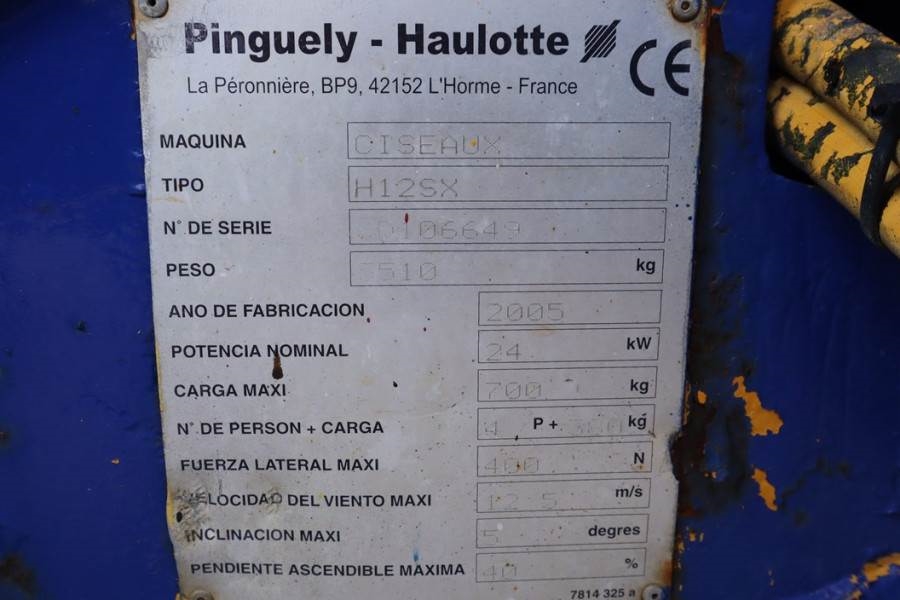 Pinguely - Haulotte
La Péronnière, BP9, 42152 L'Horme - France
CE
MAQUINA CISEAUX
TIPO H12SX
N° DE SERIE
PESO kg
ANO DE FABRICACION 2005
POTENCIA NOMINAL 24 kW
CARGA MAXI 700 kg
N° DE PERSON + CARGA 4 P + kg
FUERZA LATERAL MAXI 400 N
VELOCIDAD DEL VIENTO MAXI 12.5 m/s
INCLINACION MAXI 5 degres
PENDIENTE ASCENDIBLE MAXIMA 40 %
7814 325 a